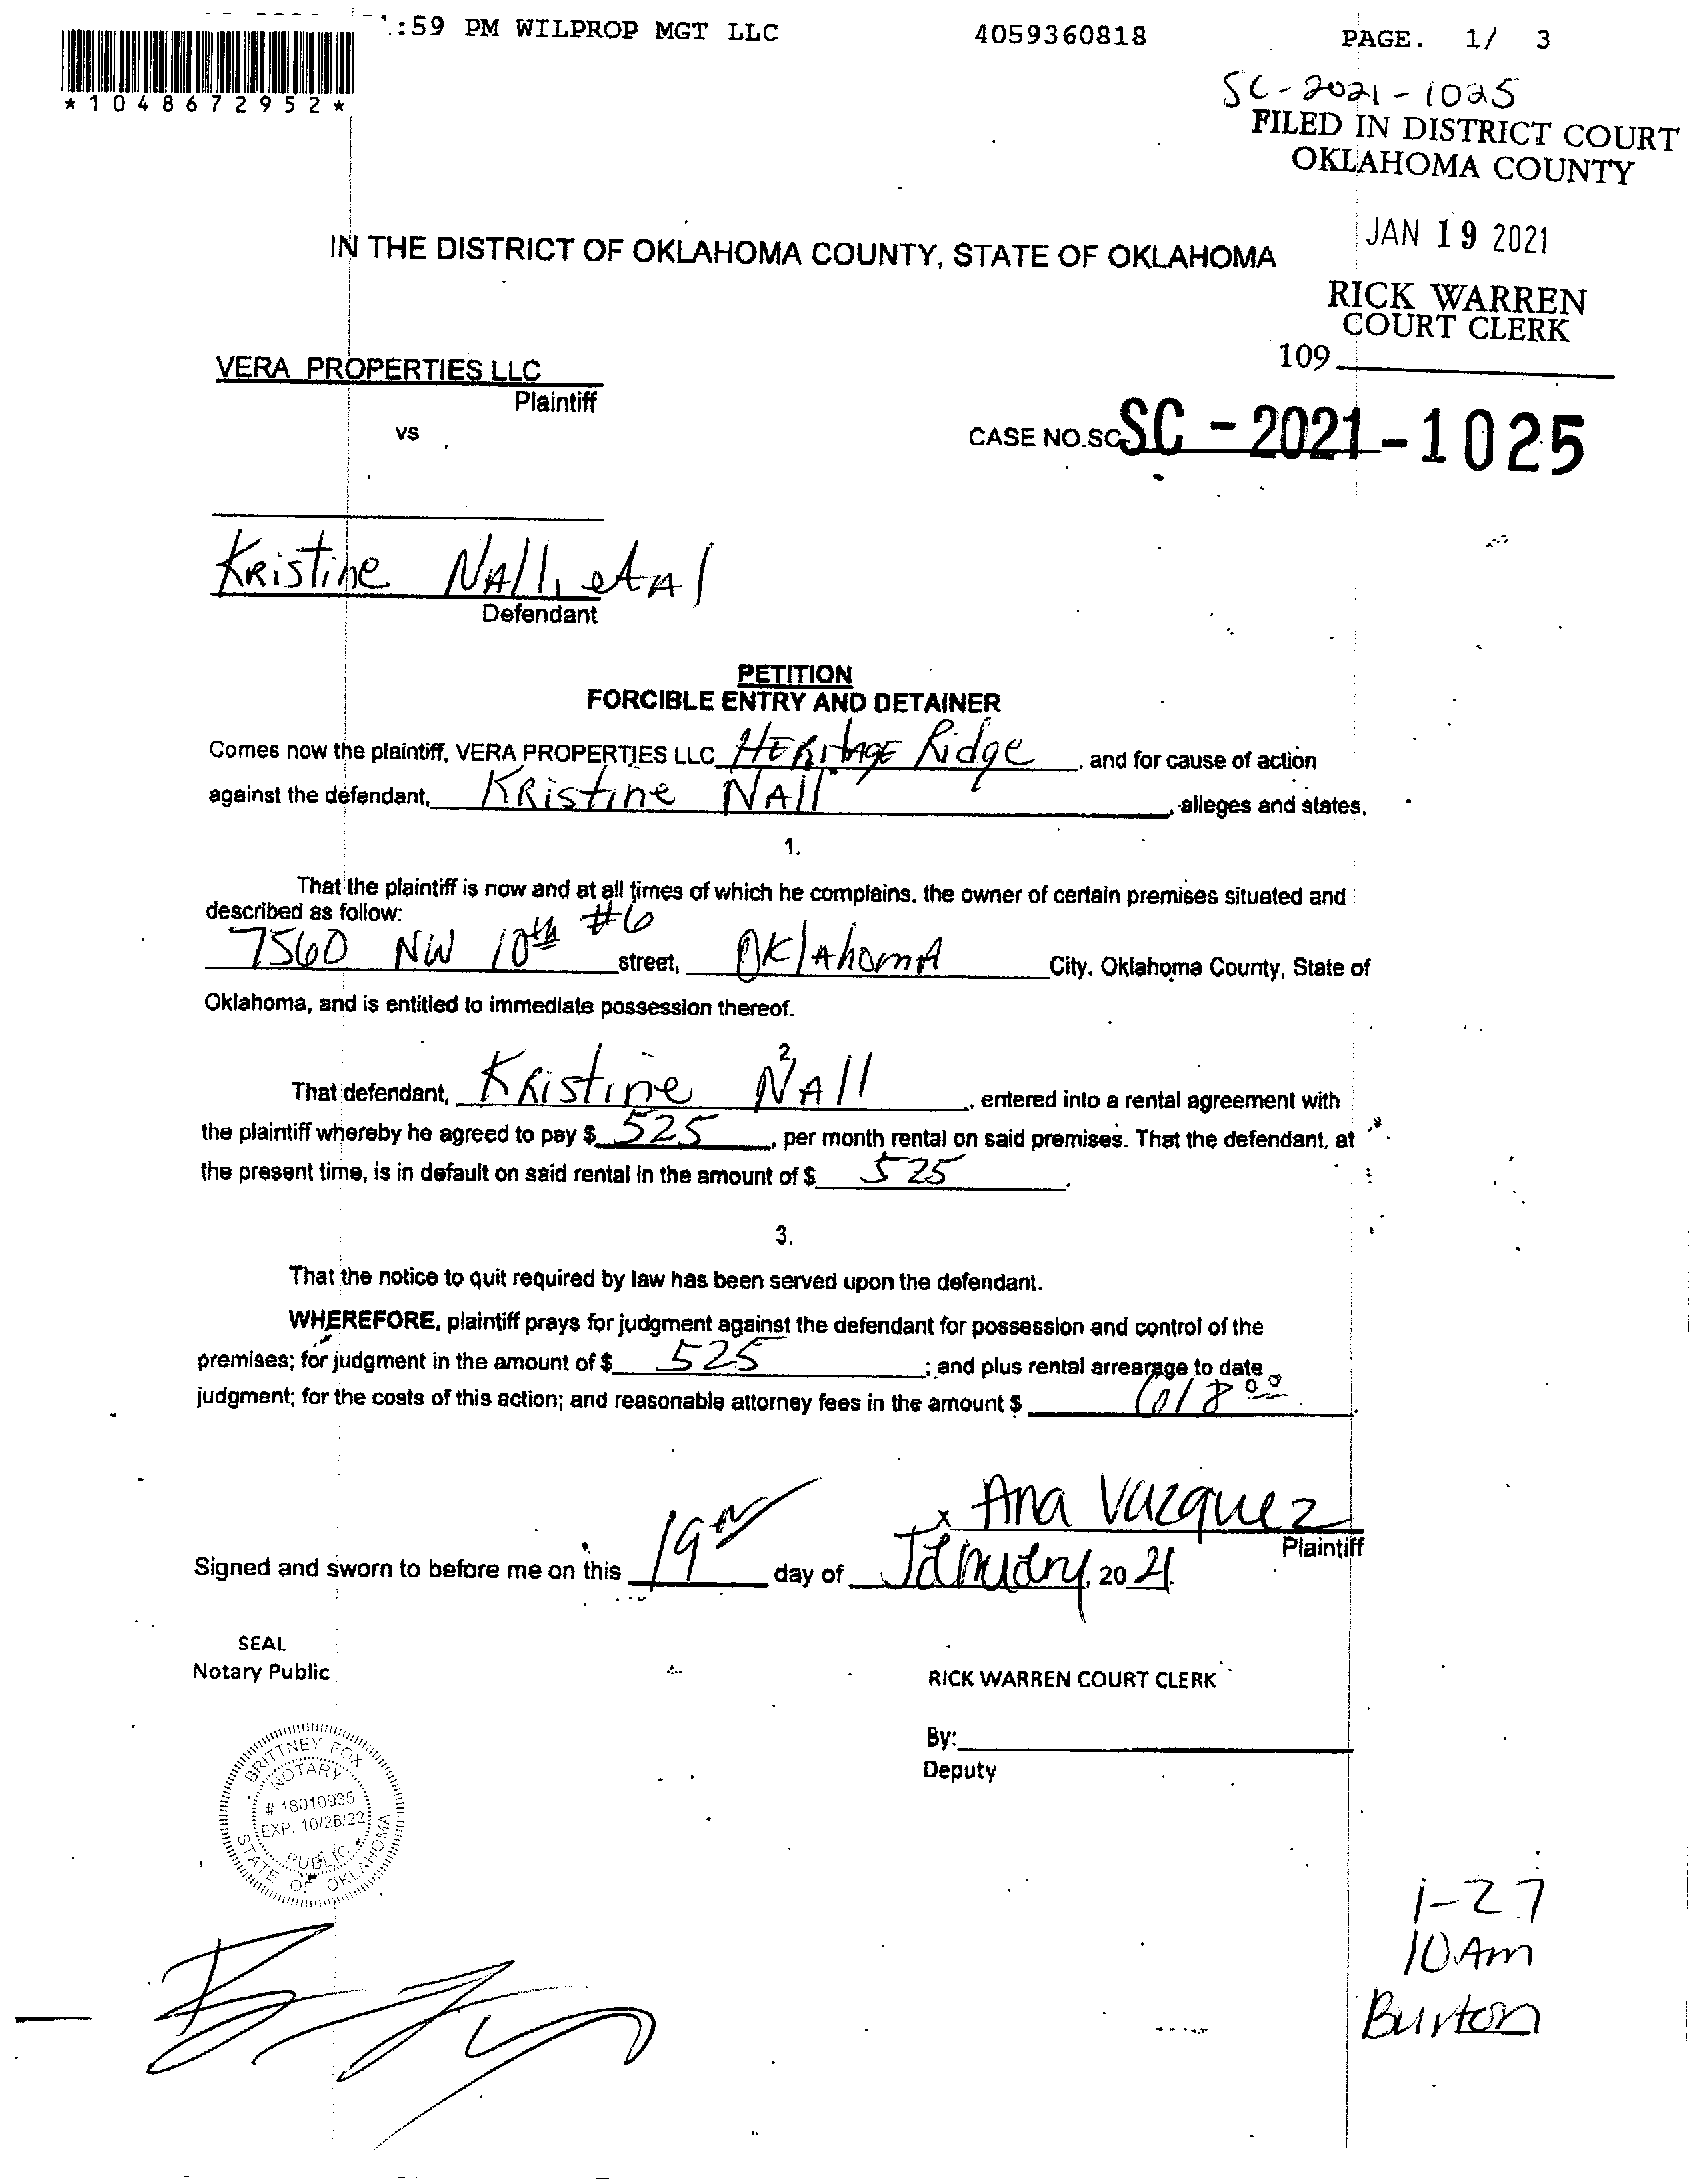 :59 PM WILPROP MGT LLC 4059360818 PAGE. 1/ 3
*1048672952*
SC-2021-1025
FILED IN DISTRICT COURT
OKLAHOMA COUNTY
JAN 19 2021
IN THE DISTRICT OF OKLAHOMA COUNTY, STATE OF OKLAHOMA
RICK WARREN
COURT CLERK
109
VERA PROPERTIES LLC
Plaintiff
vs
CASE NO.SC SC - 2021 - 1025
Kristine Nall, et Al
Defendant
PETITION
FORCIBLE ENTRY AND DETAINER
Comes now the plaintiff, VERA PROPERTIES LLC Heritage Ridge, and for cause of action
against the defendant, Kristine Nall, alleges and states,
1.
That the plaintiff is now and at all times of which he complains, the owner of certain premises situated and
described as follow:
7560 NW 10th #6 street, Oklahoma City, Oklahoma County, State of
Oklahoma, and is entitled to immediate possession thereof.
2,
That defendant, Kristine Nall, entered into a rental agreement with
the plaintiff whereby he agreed to pay $ 525, per month rental on said premises. That the defendant, at
the present time, is in default on said rental in the amount of $ 525.
3.
That the notice to quit required by law has been served upon the defendant.
WHEREFORE, plaintiff prays for judgment against the defendant for possession and control of the
premises; for judgment in the amount of $ 525; and plus rental arrearage to date
judgment; for the costs of this action; and reasonable attorney fees in the amount $ 618.00.
x Ana Vazquez
Plaintiff
Signed and sworn to before me on this 19 day of January, 2021.
SEAL
Notary Public
RICK WARREN COURT CLERK
By:
Deputy
BRITTNEY FOX
NOTARY
# 18010935
EXP. 10/26/22
PUBLIC
STATE OF OKLAHOMA
1-27
10 Am
Burton